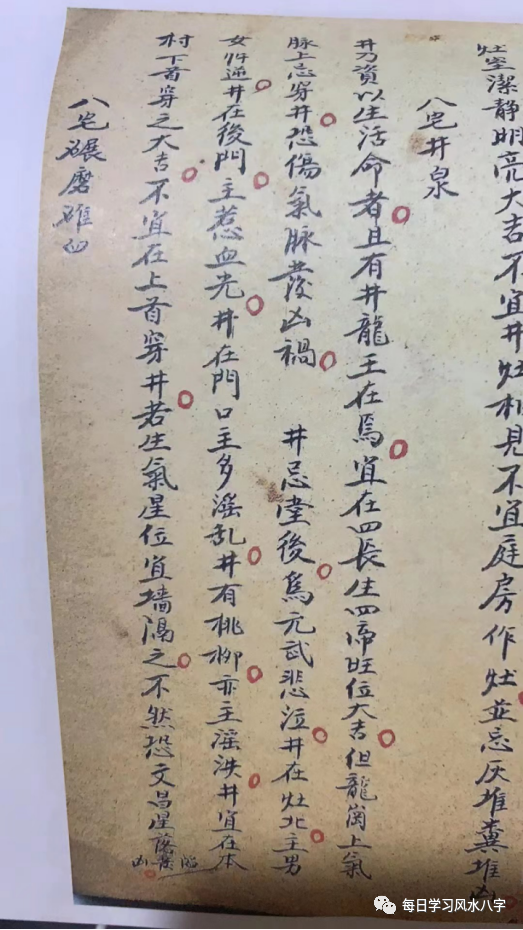 灶室潔静明亮大吉不宜井灶相見不宜庭房作灶並忌灰堆糞堆凶
八宅井泉
井乃資以生活命者且有井龍王在焉宜在四長生四帝旺位大吉但龍崗上氣
脉上忌穿井恐傷氣脉發凶禍 井忌堂後爲元武悲泣井在灶北主男
女忤逆井在後門主惹血光井在門口主多滛乱井有桃柳亦主滛泆井宜在本
村下首穿之大吉不宜在上首穿井若生氣星位宜墻隔之不然恐文昌星落
凶
八宅碾磨碓
每日学习风水八字